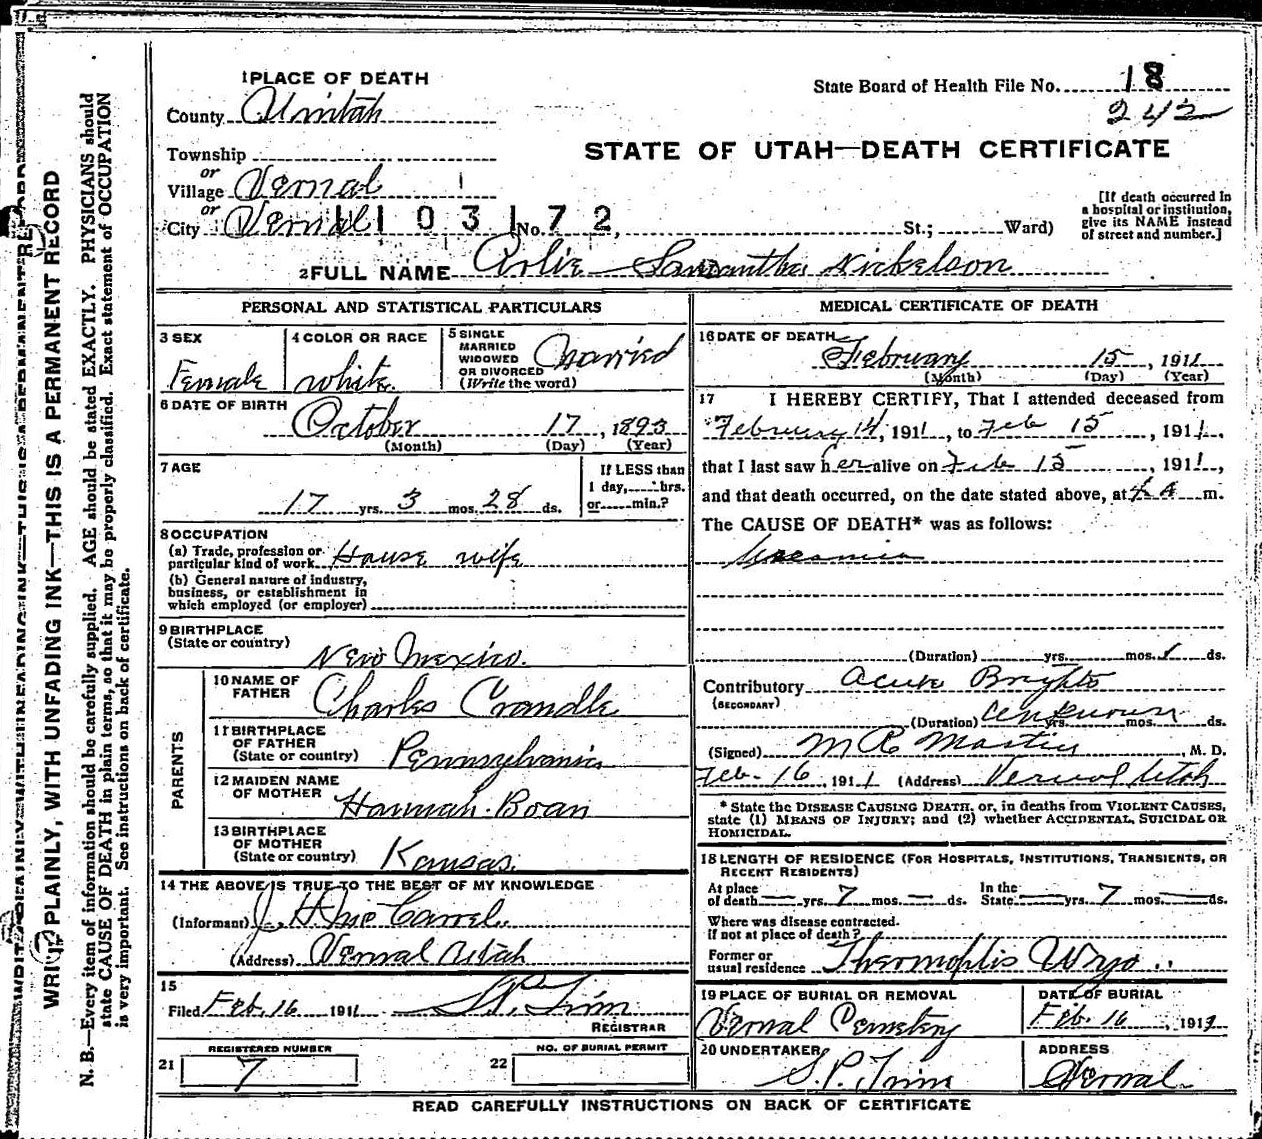 1 PLACE OF DEATH
State Board of Health File No. 18
County Uintah
242
Township
STATE OF UTAH—DEATH CERTIFICATE
or
Village Vernal
or
City Vernal No. St.; Ward)
1103172
[If death occurred in
a hospital or institution,
give its NAME instead
of street and number.]
2 FULL NAME Orlie Samantha Nickelson
PERSONAL AND STATISTICAL PARTICULARS
3 SEX
Female
4 COLOR OR RACE
white
5 SINGLE
MARRIED
WIDOWED
OR DIVORCED
(Write the word)
Married
6 DATE OF BIRTH
October 17, 1893
(Month) (Day) (Year)
7 AGE
17 yrs. 3 mos. 28 ds.
If LESS than
1 day, hrs.
or min.?
8 OCCUPATION
(a) Trade, profession or
particular kind of work House wife
(b) General nature of industry,
business, or establishment in
which employed (or employer)
9 BIRTHPLACE
(State or country)
New Mexico.
PARENTS
10 NAME OF
FATHER
Charles Crandle
11 BIRTHPLACE
OF FATHER
(State or country)
Pennsylvania
12 MAIDEN NAME
OF MOTHER
Hannah Boan
13 BIRTHPLACE
OF MOTHER
(State or country)
Kansas.
14 THE ABOVE IS TRUE TO THE BEST OF MY KNOWLEDGE
(Informant)
(Address) Vernal Utah
15
Filed Feb. 16 1911 S.P. Trim
REGISTRAR
REGISTERED NUMBER
21 7
NO. OF BURIAL PERMIT
22
MEDICAL CERTIFICATE OF DEATH
16 DATE OF DEATH
February 15, 1911
(Month) (Day) (Year)
17 I HEREBY CERTIFY, That I attended deceased from
February 14, 1911, to Feb 15, 1911,
that I last saw her alive on Feb 15, 1911,
and that death occurred, on the date stated above, at m.
The CAUSE OF DEATH* was as follows:
Uraemia
(Duration) yrs. mos. 1 ds.
Contributory Acute Brights
(SECONDARY)
(Duration) unknown yrs. mos. ds.
(Signed) M.D.
Feb. 16, 1911 (Address) Vernal Utah
* State the DISEASE CAUSING DEATH, or, in deaths from VIOLENT CAUSES,
state (1) MEANS OF INJURY; and (2) whether ACCIDENTAL, SUICIDAL OR
HOMICIDAL.
18 LENGTH OF RESIDENCE (FOR HOSPITALS, INSTITUTIONS, TRANSIENTS, OR
RECENT RESIDENTS)
At place
of death — yrs. 7 mos. — ds.
In the
State — yrs. 7 mos. — ds.
Where was disease contracted.
if not at place of death?
Former or
usual residence Thermoplis Wyo.
19 PLACE OF BURIAL OR REMOVAL
Vernal Cemetery
DATE OF BURIAL
Feb. 16, 1911
20 UNDERTAKER
S.P. Trim
ADDRESS
Vernal
READ CAREFULLY INSTRUCTIONS ON BACK OF CERTIFICATE
WRITE PLAINLY, WITH UNFADING INK—THIS IS A PERMANENT RECORD
N. B.—Every item of information should be carefully supplied. AGE should be stated EXACTLY. PHYSICIANS should
state CAUSE OF DEATH in plain terms, so that it may be properly classified. Exact statement of OCCUPATION
is very important. See instructions on back of certificate.